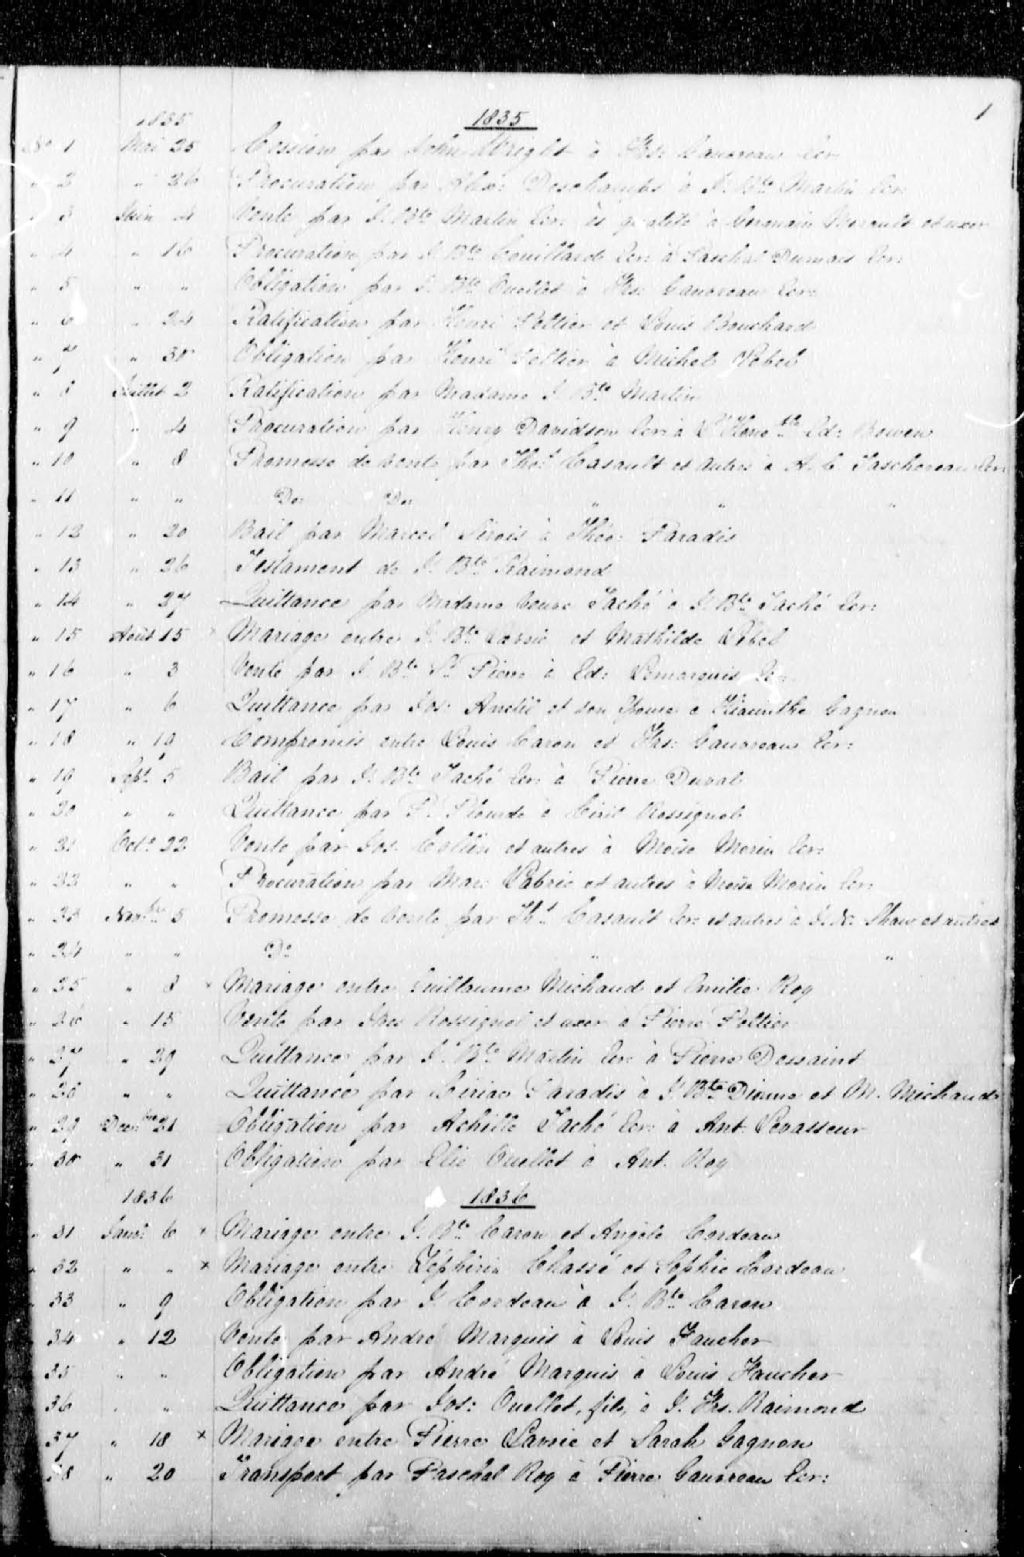 1
1835 1835
No 1 Mai 25 Cession par John Wright à Frs: Cauvreau Ecr
" 2 " 26 Procuration par Alex: Deschamps à J. Bte Martin Ecr:
" 3 Juin 4 Vente par J. Bte Martin Ecr: ès qualité à Germain et uxor
" 4 " 16 Procuration par J. Bte Couillard Ecr: à Paschal Dumais Ecr:
" 5 " " Obligation par J. Bte Ouellet à Frs: Cauvreau Ecr:
" 6 " 24 Ratification par Henri Peltier et Louis Bouchard
" 7 " 30 Obligation par Henri Peltier à Michel Lebel
" 8 Juillet 2 Ratification par Madame J. Bte Martin
" 9 " 4 Procuration par Henry Davidson Ecr: à L'Honble Ed: Bowen
" 10 " 8 Promesse de Vente par Ths Casault et autres à A. C. Taschereau Ecr
" 11 " " Do: Do: " " "
" 12 " 20 Bail par Marcel Sirois à Théo: Paradis
" 13 " 26 Testament de J. Bte Raimond
" 14 " 27 Quittance par Madame Veuve Taché à J. Bte Taché Ecr:
" 15 Août 15 × Mariage entre J. Bte Lavoie et Mathilde Lebel
" 16 " 3 Vente par J. Bte St Pierre à Ed: Ecr:
" 17 " 6 Quittance par Jos: Anctil et son Epouse à Hiacinthe Gagnon
" 18 " 19 Compromis entre Louis Caron et Frs: Cauvreau Ecr:
" 19 Sept. 5 Bail par J. Bte Taché Ecr: à Pierre Duval
" 20 " " Quittance par P. Plourde à Ciril Rossignol
" 21 Oct. 22 Vente par Jos: Collin et autres à Moïse Morin Ecr:
" 22 " " Procuration par Mar: Labrie et autres à Moïse Morin Ecr:
" 23 Novbre 5 Promesse de Vente par Ths Casault Ecr: et autres à J. N: Shaw et autres
" 24 " " Do " "
" 25 " 8 × Mariage entre Guillaume Michaud et Emilie Roy
" 26 " 13 Vente par Rossignol et uxor à Pierre Peltier
" 27 " 29 Quittance par J. Bte Martin Ecr: à Pierre Dessaint
" 28 " " Quittance par Ciriac Paradis à J. Bte Dionne et M. Michaud
" 29 Decembre 21 Obligation par Achille Taché Ecr: à Ant. Levasseur
" 30 " 31 Obligation par Elie Ouellet à Ant. Roy
1836 1836
" 31 Janvr 6 × Mariage entre J. Bte Caron et Angèle Cordeau
" 32 " " × Mariage entre Zéphirin Chassé et Sophie Cordeau
" 33 " 9 Obligation par J. Cordeau à J. Bte Caron
" 34 " 12 Vente par André Marquis à Louis Faucher
35 " " Obligation par André Marquis à Louis Faucher
36 " " Quittance par Jos: Ouellet, fils, à J. Frs. Raimond
37 " 18 × Mariage entre Pierre Lavoie et Sarah Gagnon
38 " 20 Transport par Paschal Roy à Pierre Cauvreau Ecr: